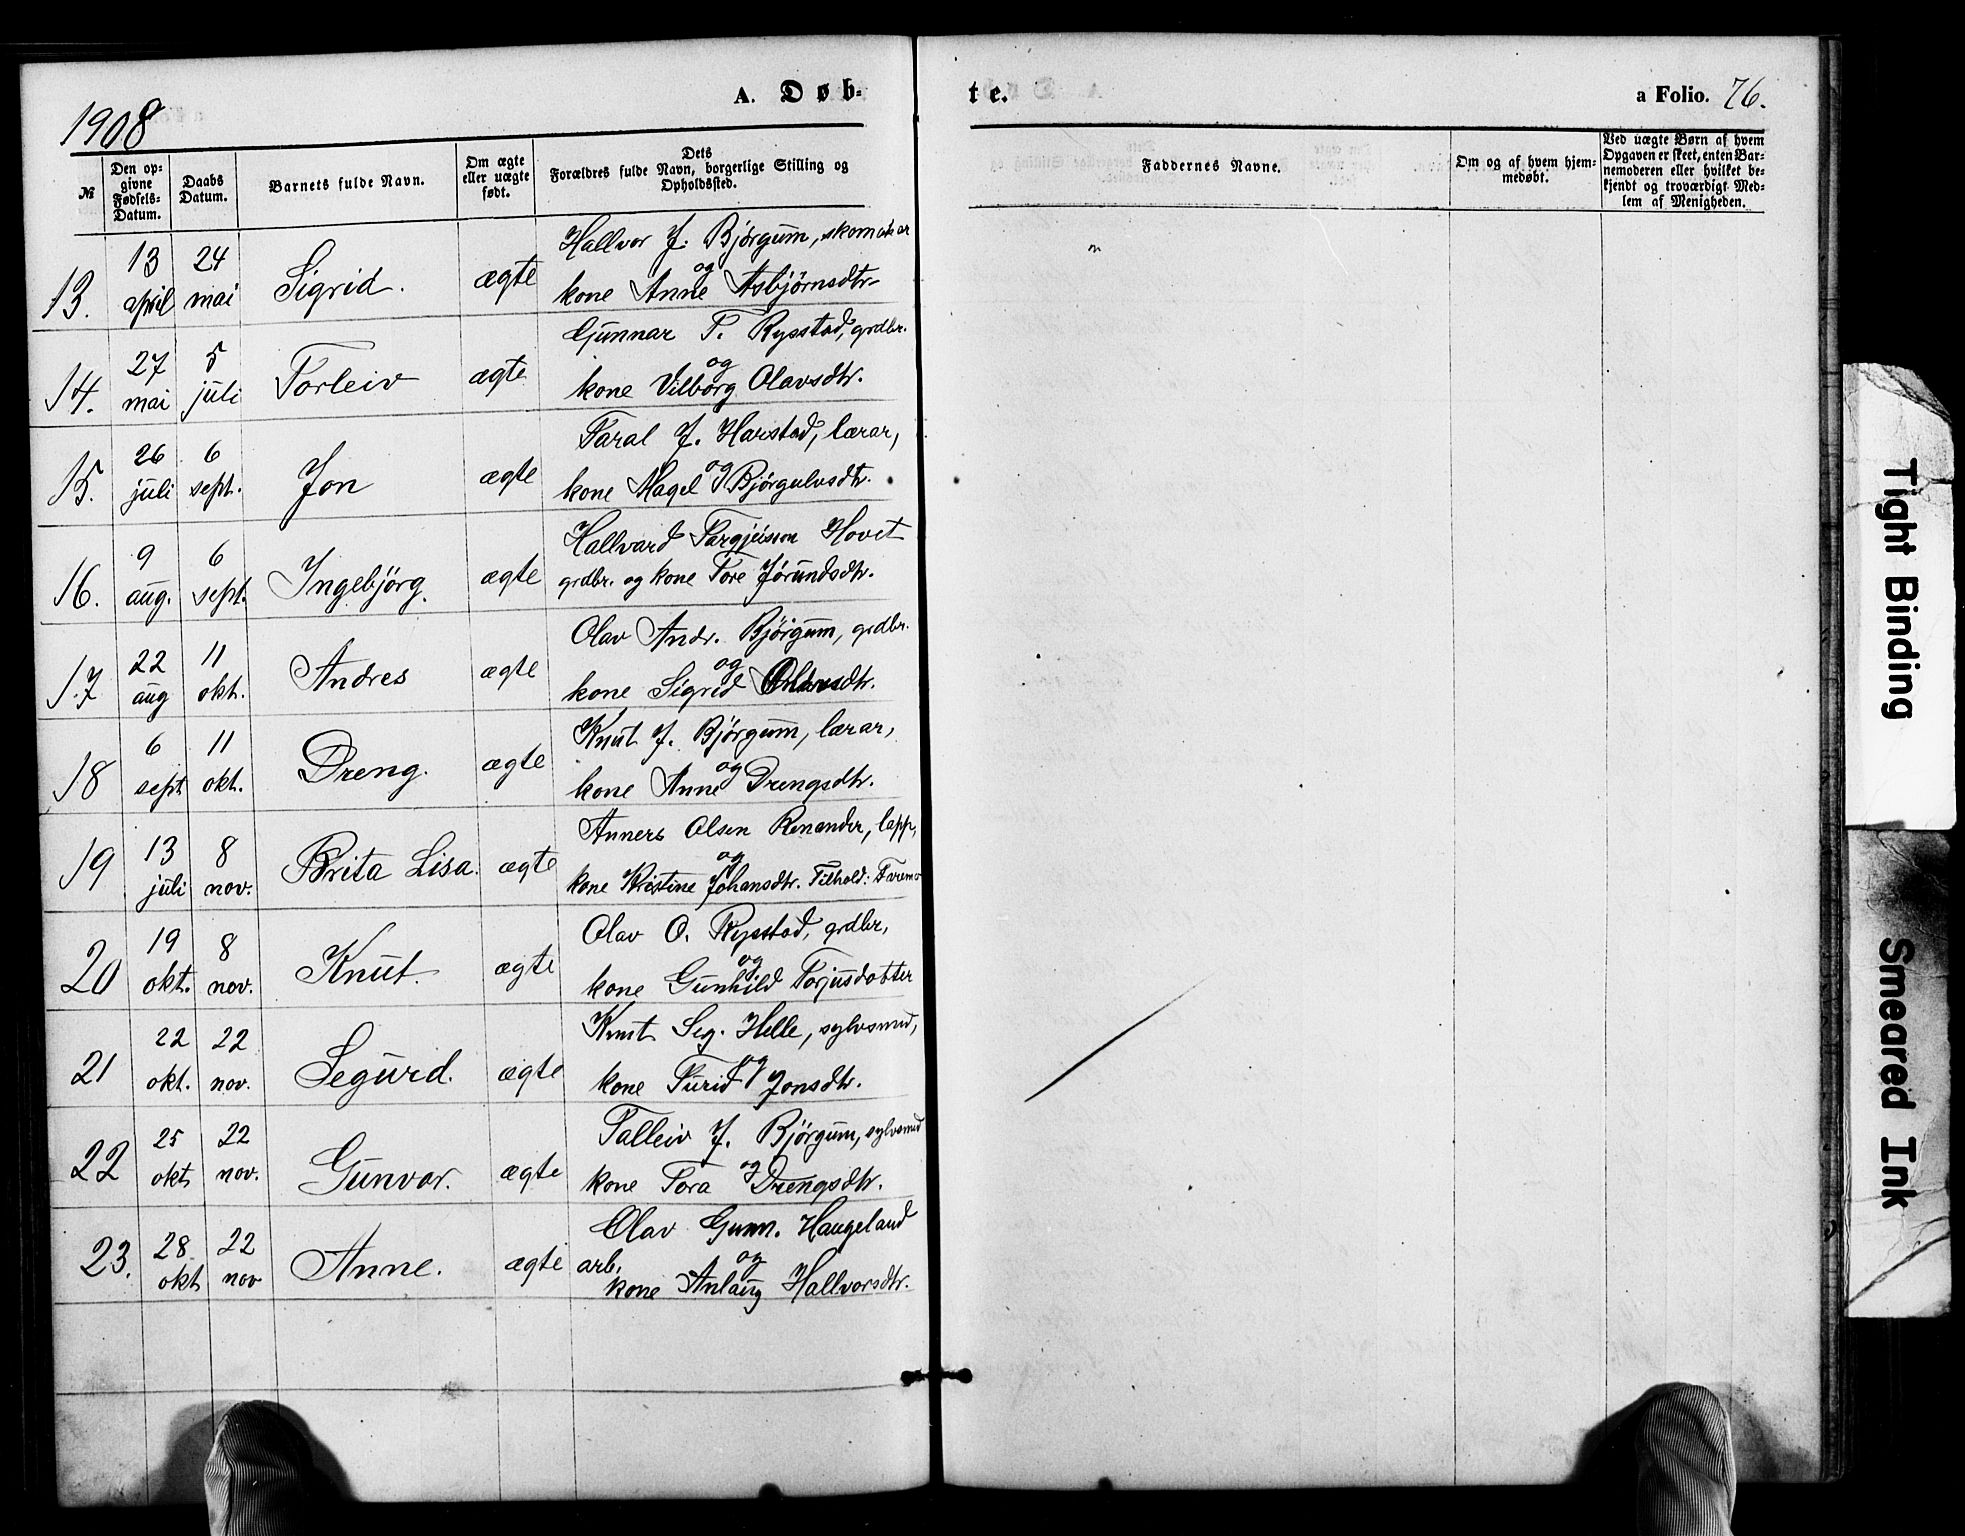 1908
A. Døb-
te.
a Folio. 76.
№
Den op-
givne
Fødsels-
Datum.
Daabs
Datum.
Barnets fulde Navn.
Om ægte
eller uægte
født.
Dets
Forældres fulde Navn, borgerlige Stilling og
Opholdssted.
Faddernes Navne.
Om og af hvem hjem-
medøbt.
Ved uægte Børn af hvem
Opgaven er skeet, enten Bar-
nemoderen eller hvilket be-
kjendt og troværdigt Med-
lem af Menigheden.
13. 13 april 24 mai Sigrid. ægte Hallvor J. Bjørgum, skomakar
og
kone Anne Asbjørnsdtr-
14. 27 mai 5 juli Torleiv ægte Gunnar T. Rysstad, grdbr.
og
kone Vilborg Olavsdtr.
15. 26 juli 6 sept. Jon ægte Taral J. Harstad, lærar,
og
kone Magel Bjørgulvsdtr.
16. 9 aug. 6 sept. Ingebjörg. ægte Hallvard Targjeisson Hovet
grdbr. og kone Tore Jørundsdtr.
17 22 aug 11 okt. Andres ægte Olav Andr. Bjørgum, grdbr.
og
kone Sigrid Olavsdtr.
18 6 sept 11 okt. Dreng. ægte Knut J. Bjørgum, lærar,
og
kone Anne Drengsdtr.
19 13 juli 8 nov. Brita Lisa. ægte Anners Olsen Renander, lapp,
og
kone Kristine Johansdtr. Tilhold:
20 19 okt. 8 nov. Knut. ægte Olav O. Rysstad, grdbr,
og
kone Gunhild Torjusdotter
21 22 okt. 22 nov. Segurd. ægte Knut Seg. Helle, sylvsmed,
og
kone Turid Jonsdtr.
22 25 okt 22 nov. Gunvor. ægte Talleiv J. Bjørgum, sylvsmed
og
kone Tora Drengsdtr.
23. 28 okt 22 nov Anne. ægte Olav Gunn. Haugeland
arb. og
kone Anlaug Hallvorsdtr.
Tight Binding
Smeared Ink